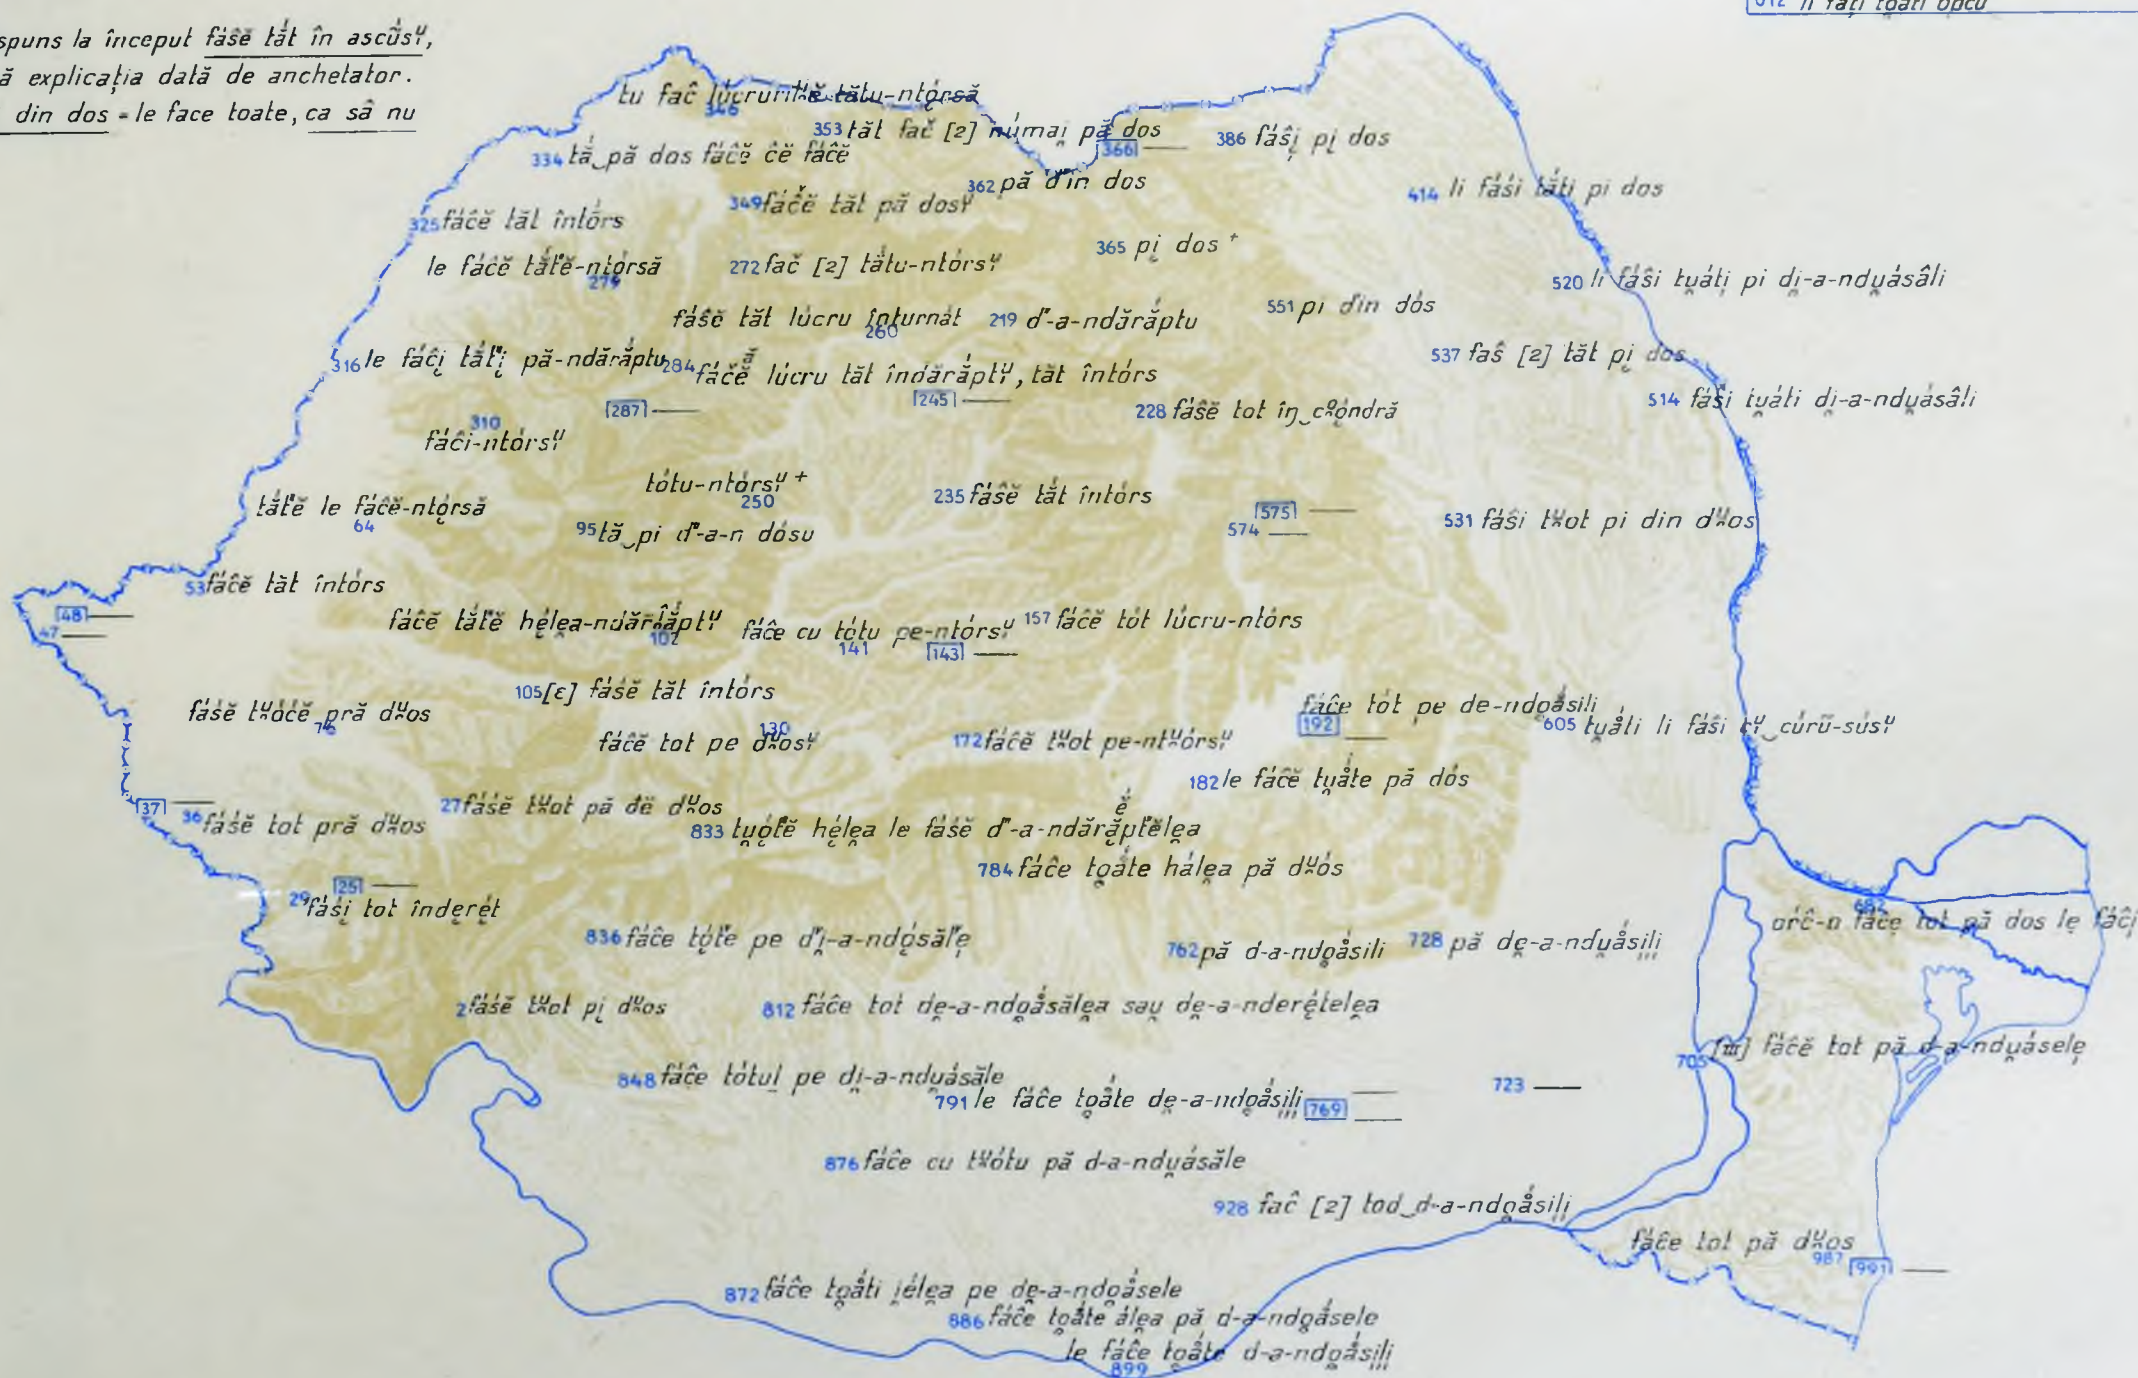 spuns la început fáśĕ tắt în ascúsᶣ,
ă explicația dată de anchetator.
din dos = le face toate, ca să nu
612 li fațĭ toatĭ
tu fac̑ lúcrurile tătu-ntǫ́rsă
346
353 tăt fac̑ [2] númaĭ pă dos
366 —
386 fáŝi̯ pi̯ dos
334 tă‿pă dos fác̑ĕ c̑ĕ fác̑ĕ
362 pă d'in dos
414 li fáŝi tắti pi dos
349 fác̑ĕ tăt pă dosᶣ
325 fác̑ĕ tăt întórs
365 pi̯ dos +
le fác̑ĕ tắt'ĕ-ntǫ́rsă
279
272 fac̑ [2] tătu-ntórsᶣ
520 li fáŝi tu̯áti̯ pi di̯-a-ndu̯ásâli
551 pi d'in dós
fáŝĕ tăt lúcru înturnát
260
219 d'-a-ndărắptu
537 faŝ [2] tăt pi̯ dos
316 le fác̑i̯ tắt'i̯ pă-ndărắptu
284 fác̑ĕ lúcru tăt îndărắptᶣ, tăt întórs
287 —
245 —
228 fáŝĕ tot îŋ‿cᵒóndră
514 fáŝi tu̯áti di̯-a-ndu̯ásâli
310
fác̑i-ntórsᶣ
tótu-ntórsᶣ +
250
235 fáŝĕ tắt întórs
575 —
574 —
531 fáŝi tᶣot pi din dᶣos
tắt'ĕ le fác̑ĕ-ntǫ́rsă
64
95 tă‿pi d'-a-n dósu
53 fác̑ĕ tăt întórs
48 —
47 —
fác̑ĕ tắt'ĕ hę́lęa-ndărắptᶣ
102
fác̑e cu tótu pe-ntórsᶣ
141
143 —
157 fác̑ĕ tót lúcru-ntórs
105 [ε] fáśĕ tăt întórs
fáśĕ tᶣóćĕ pră dᶣos
76
fác̑ĕ tot pe dᶣosᶣ
130
172 fác̑ĕ tᶣot pe-ntᶣórsᶣ
fác̑e tót pe de-ndo̯ásili
192 —
605 tu̯áti li fáŝi cᶣ‿cúrŭ-súsᶣ
182 le fác̑ĕ tu̯áte pă dós
37 —
36 fáśĕ tot pră dᶣos
27 fáśĕ tᶣot pă dĕ dᶣos
833 tu̯ǫt'ĕ hę́lęa le fáŝĕ d'-a-ndărắpt'ĕlęa
784 fác̑e to̯áte hálęa pă dᶣós
251 —
29 fáśi̯ tot înderét
682
orc̑-o fác̑e tot pă dos le fác̑i
836 fác̑e tǫ́t'e pe d'i̯-a-ndǫ́săl'e
762 pă d-a-ndo̯ásili
728 pă de̯-a-ndu̯ásili̯
2 fáśĕ tᶣot pi̯ dᶣos
812 fác̑e tot de̯-a-ndo̯ásălęa sau̯ de̯-a-nderę́telęa
705 [III] fác̑ĕ tot pă d-a-ndu̯ásele
848 fác̑e tótul pe di̯-a-ndu̯ásăle
791 le fác̑e to̯áte de̯-a-ndo̯ásili̯
769 —
723 —
876 fác̑e cu tᶣótu pă d-a-ndu̯ásăle
928 fac̑ [2] tod‿d-a-ndo̯ásili̯
fác̑e tot pă dᶣos
987
991 —
872 fác̑e to̯áti i̯élęa pe de̯-a-ndo̯ásele
886 fác̑e to̯áte álęa pă d-a-ndo̯ásele
le fác̑e to̯áte d-a-ndo̯ásili̯
899